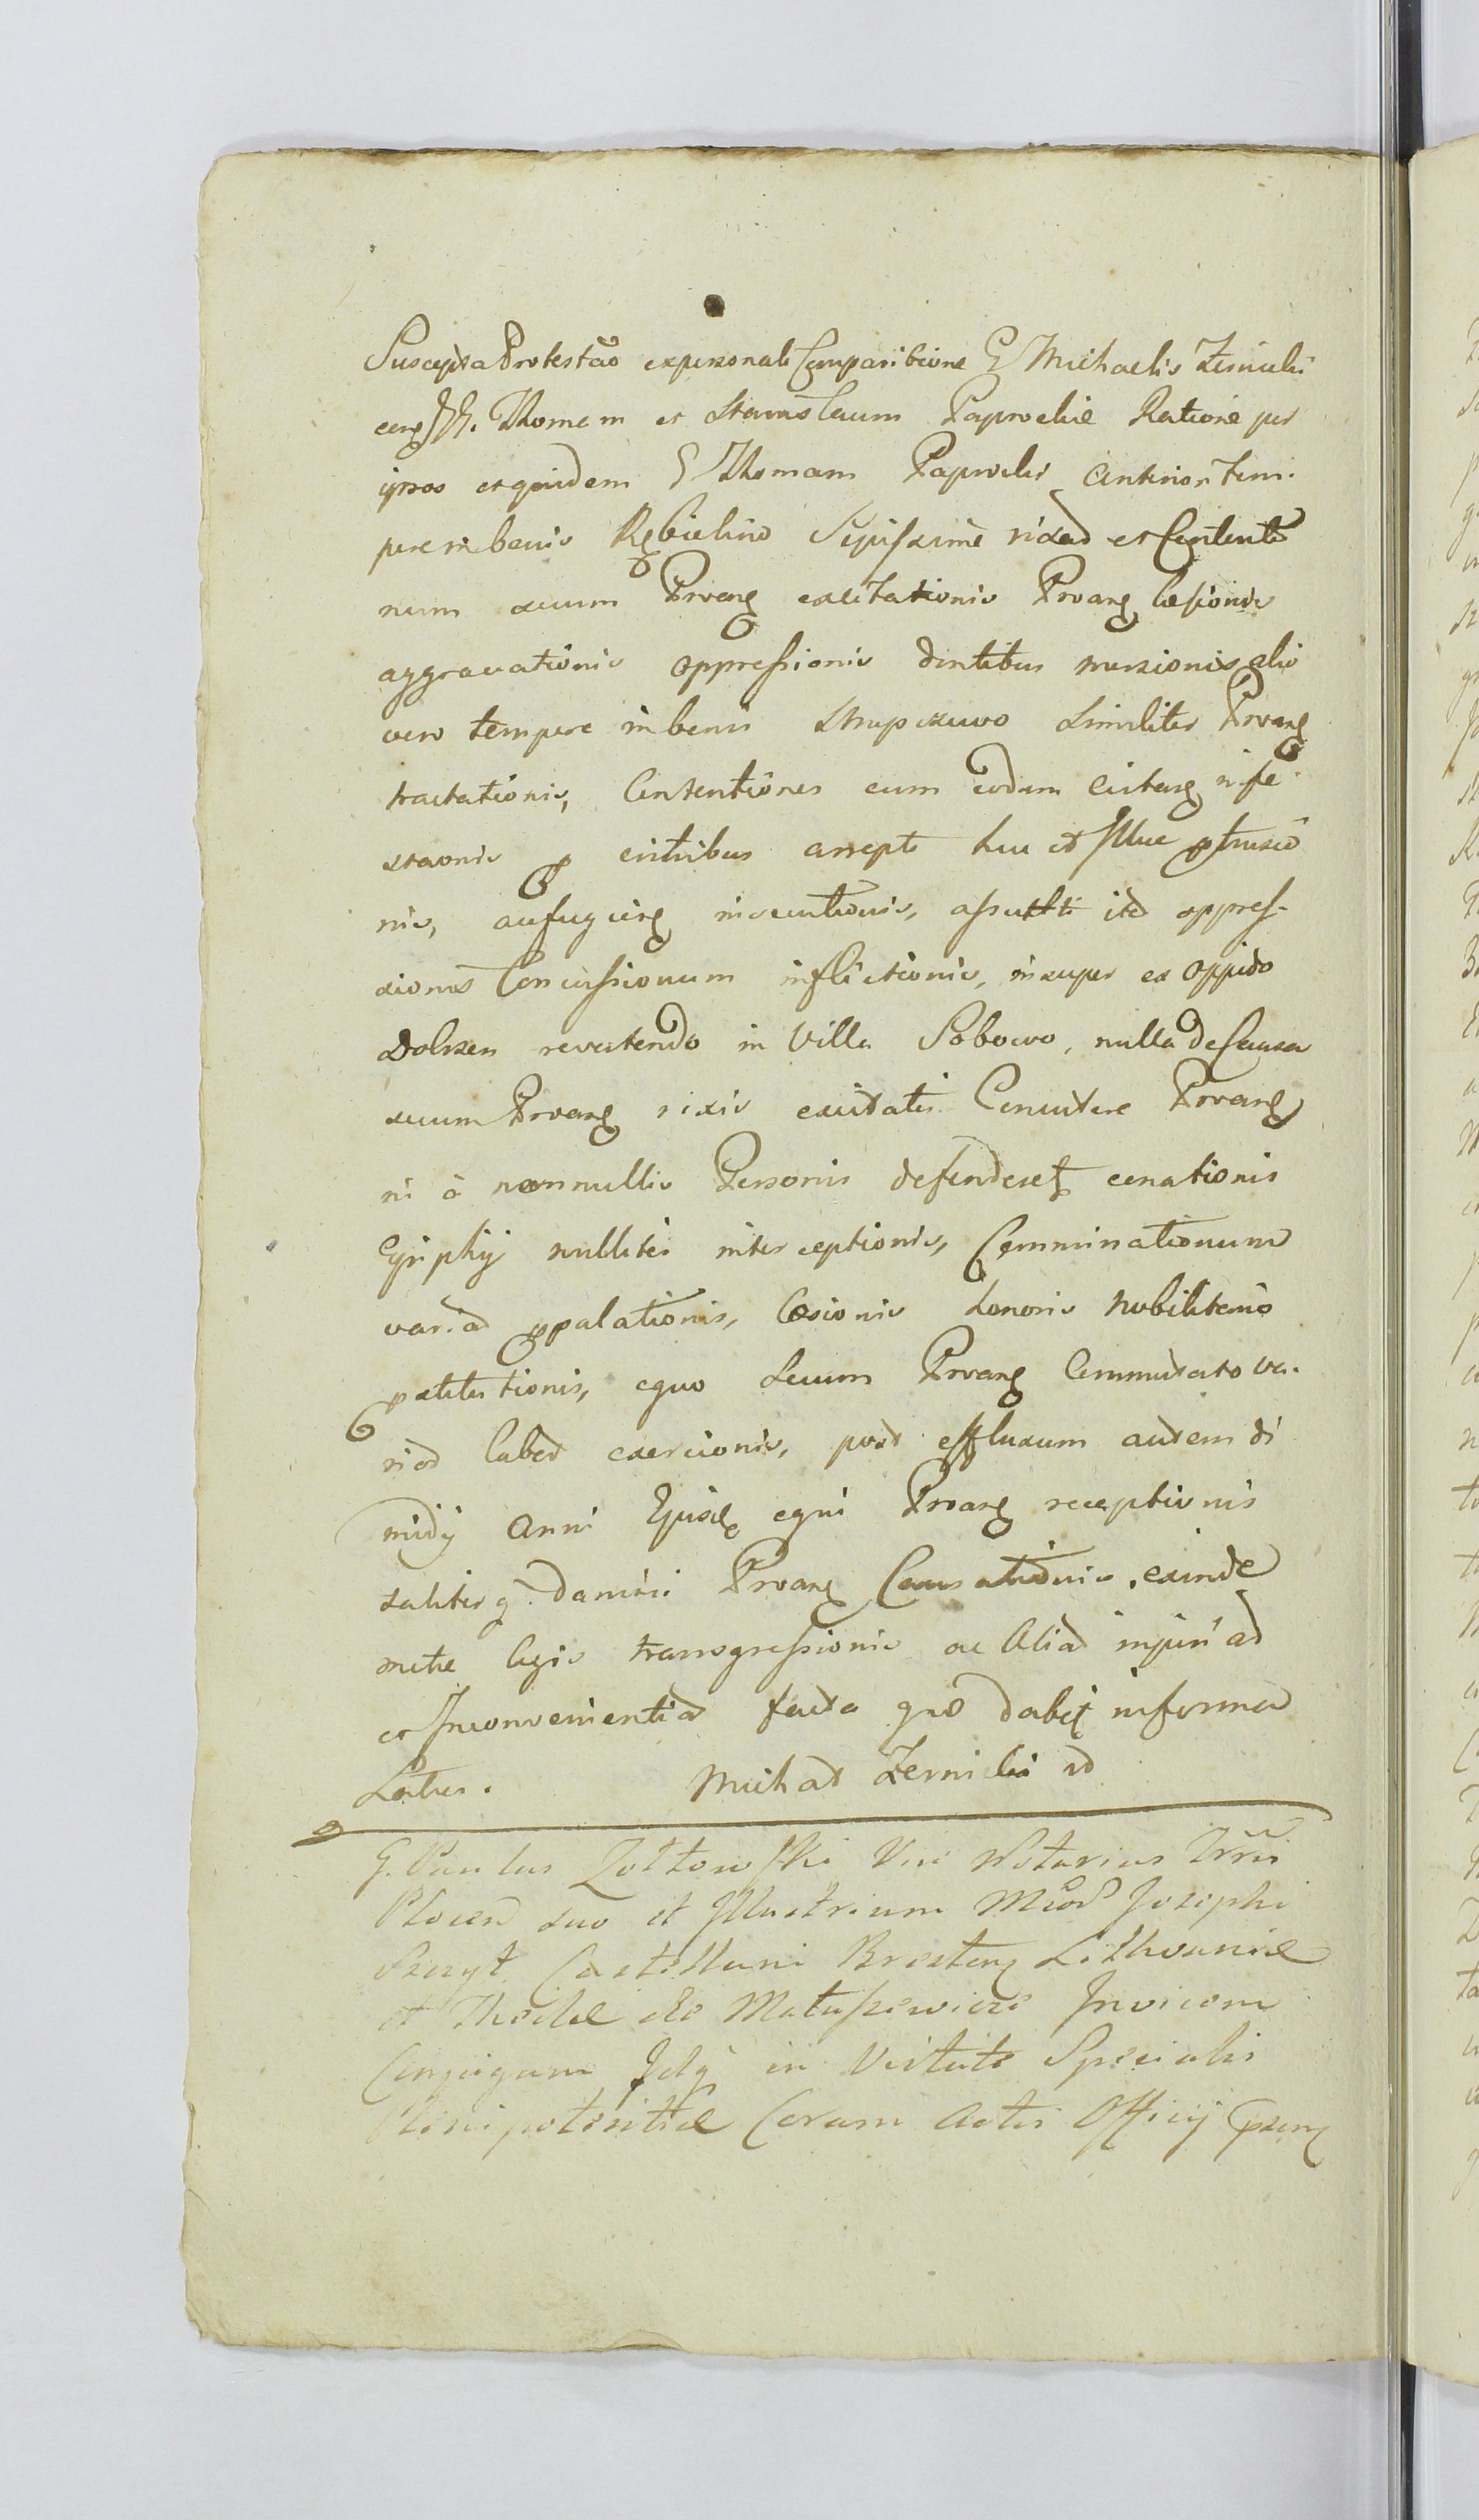 Suscepta Protestão ex personali Comparitione G Michaelis Zernicki
cong JJ. Thomam et Stanislaum Paprockie Ratione per
ipsos et quidem G Thomam Paprocki Anteriori tem.
pore in bonis Rębielino Sepissime rixas et Contentio
num secum Prvang excitationis Prvang læsionis
aggravationis oppressionis dentibus morsionis alio
vero tempore in bonis Strupczewo Similiter Prvang
tractationis, Contentiones cum eodem Citang infe
stationis p crinibus arrepti huc et Illuc ptrusio
nis, aufugieng insecutionis, assulti itd oppres-
sionis Concussionum inflictionis, insuper ex Oppido
Dobrzen revertendo in Villa Sobowo, nulla de Causa
secum Prvang rixis excitatis Concutere Prvang
ni à nonnullis Personis defenderet conationis
Gyriphij nulliter interceptionis, Comminationum
variad ppalationis, læsionis honoris Nobilitaris
pstitutionis, equo Secum Prvang Commutato va.
riad labed exercionis, post effluxum autem di
midij Anni Ejusd equi Prvang receptionis
taliterq damni Prvang Causationis, exinde
metæ legis transgressionis ac Aliad injuriad
et Inconvenientiad facta quæ dabit informad
Latius. Michał Zernicki id
G. Paulus Zołtowski Vice Notarius Trris
Plocen suo et Illustrium Mcod Josephi
Szczyt Castellani Bresteng Lithvaniæ
et Theclæ de Matuszewicze Invicem
Conjugum Jdq in Virtute Specialis
Plenipotentiæ Coram Actis Officij Pseng